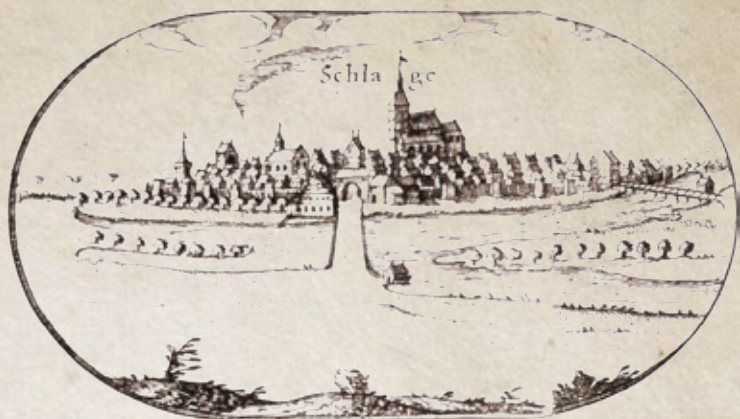 Schla ge